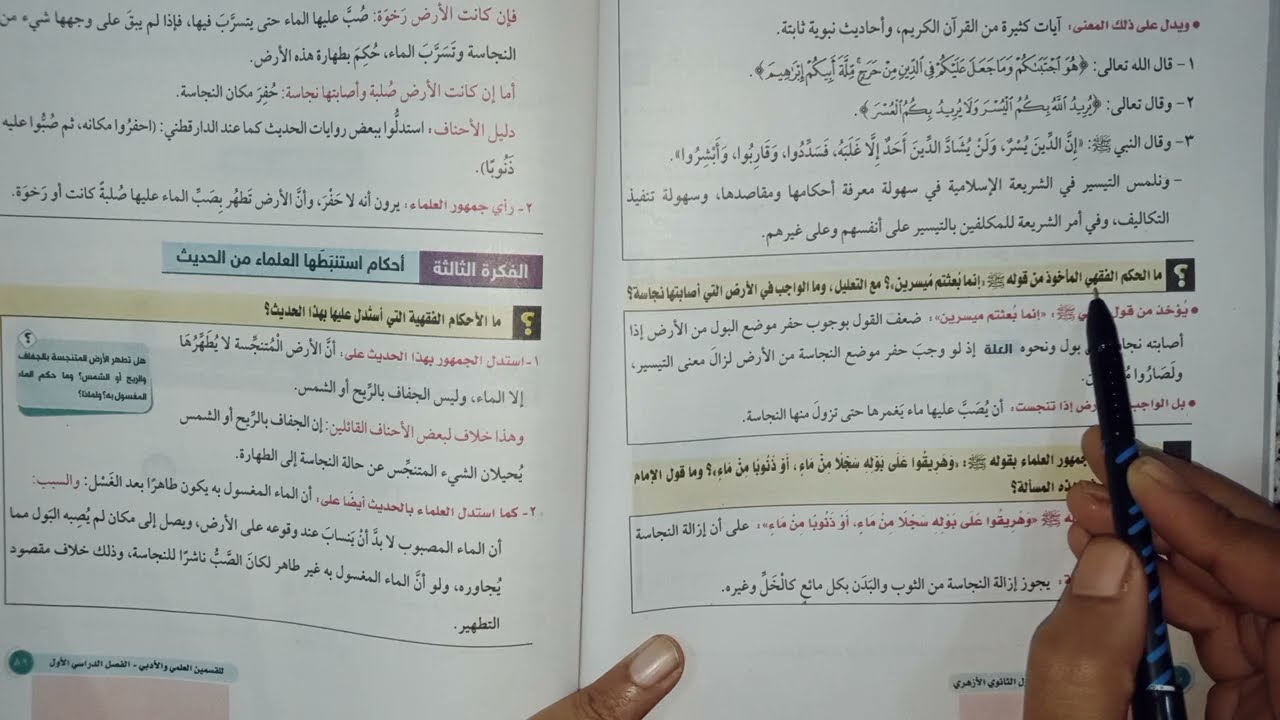 • ويدل على ذلك المعنى: آيات كثيرة من القرآن الكريم، وأحاديث نبوية ثابتة.
١- قال الله تعالى: ﴿هُوَ اجْتَبَاكُمْ وَمَا جَعَلَ عَلَيْكُمْ فِي الدِّينِ مِنْ حَرَجٍ مِّلَّةَ أَبِيكُمْ إِبْرَاهِيمَ﴾.
٢- وقال تعالى: ﴿يُرِيدُ اللَّهُ بِكُمُ الْيُسْرَ وَلَا يُرِيدُ بِكُمُ الْعُسْرَ﴾.
٣- وقال النبي ﷺ: «إِنَّ الدِّينَ يُسْرٌ، وَلَنْ يُشَادَّ الدِّينَ أَحَدٌ إِلَّا غَلَبَهُ، فَسَدِّدُوا، وَقَارِبُوا، وَأَبْشِرُوا».
- ونلمس التيسير في الشريعة الإسلامية في سهولة معرفة أحكامها ومقاصدها، وسهولة تنفيذ
التكاليف، وفي أمر الشريعة للمكلفين بالتيسير على أنفسهم وعلى غيرهم.
؟ ما الحكم الفقهي المأخوذ من قوله ﷺ «إنما بُعثتم مُيسرين»؟ مع التعليل، وما الواجب في الأرض التي أصابتها نجاسة؟
• يُؤخذ من قول ﷺ: «إنما بُعثتم ميسرين»: ضعف القول بوجوب حفر موضع البول من الأرض إذا
أصابته بول ونحوه العلة إذ لو وجبَ حفر موضع النجاسة من الأرض لزالَ معنى التيسير،
ولَصَارُوا
• بل الواجب إذا تنجست: أن يُصَبَّ عليها ماء يَغمرها حتى تزولَ منها النجاسة.
جمهور العلماء بقوله ﷺ: «وَهَرِيقُوا عَلَى بَوْلِهِ سَجْلًا مِنْ مَاءٍ، أَوْ ذَنُوبًا مِنْ مَاءٍ»؟ وما قول الإمام
المسألة؟
ﷺ «وَهَرِيقُوا عَلَى بَوْلِهِ سَجْلًا مِنْ مَاءٍ، أَوْ ذَنُوبًا مِنْ مَاءٍ»: على أن إزالة النجاسة
يجوز إزالة النجاسة من الثوب والبَدَن بكل مائعٍ كالْخَلِّ وغيره.
الثانوي الأزهري
فإن كانت الأرض رَخوَة: صُبَّ عليها الماء حتى يتسرَّبَ فيها، فإذا لم يبقَ على وجهها شيء من
النجاسة وتَسَرَّبَ الماء، حُكِمَ بطهارة هذه الأرض.
أما إن كانت الأرض صُلبة وأصابتها نجاسة: حُفِرَ مكان النجاسة.
دليل الأحناف: استدلُّوا ببعض روايات الحديث كما عند الدارقطني: (احفرُوا مكانه، ثم صُبُّوا عليه
ذَنُوبًا).
٢- رأي جمهور العلماء: يرون أنه لا حَفْرَ، وأنَّ الأرض تَطهُر بِصَبِّ الماء عليها صُلبةً كانت أو رَخوَة.
الفكرة الثالثة أحكام استنبَطَها العلماء من الحديث
؟ ما الأحكام الفقهية التي أستدل عليها بهذا الحديث؟
١- استدل الجمهور بهذا الحديث على: أنَّ الأرض الْمُتنجِّسة لا يُطَهِّرُهَا
إلا الماء، وليس الجفاف بالرِّيح أو الشمس.
وهذا خلاف لبعض الأحناف القائلين: إن الجفاف بالرِّيح أو الشمس
يُحيلان الشيء المتنجِّس عن حالة النجاسة إلى الطهارة.
؟
هل تطهر الأرض المتنجسة بالجفاف
والريح أو الشمس؟ وما حكم الماء
المغسول به؟ ولماذا؟
٢- كما استدل العلماء بالحديث أيضًا على: أن الماء المغسول به يكون طاهرًا بعد الغَسْل: والسبب:
أن الماء المصبوب لا بدَّ أنْ يَنسابَ عند وقوعه على الأرض، ويصل إلى مكان لم يُصِبه البَول مما
يُجاوره، ولو أنَّ الماء المغسول به غير طاهر لكانَ الصَّبُّ ناشرًا للنجاسة، وذلك خلاف مقصود
التطهير.
للقسمين العلمي والأدبي - الفصل الدراسي الأول ٨٩